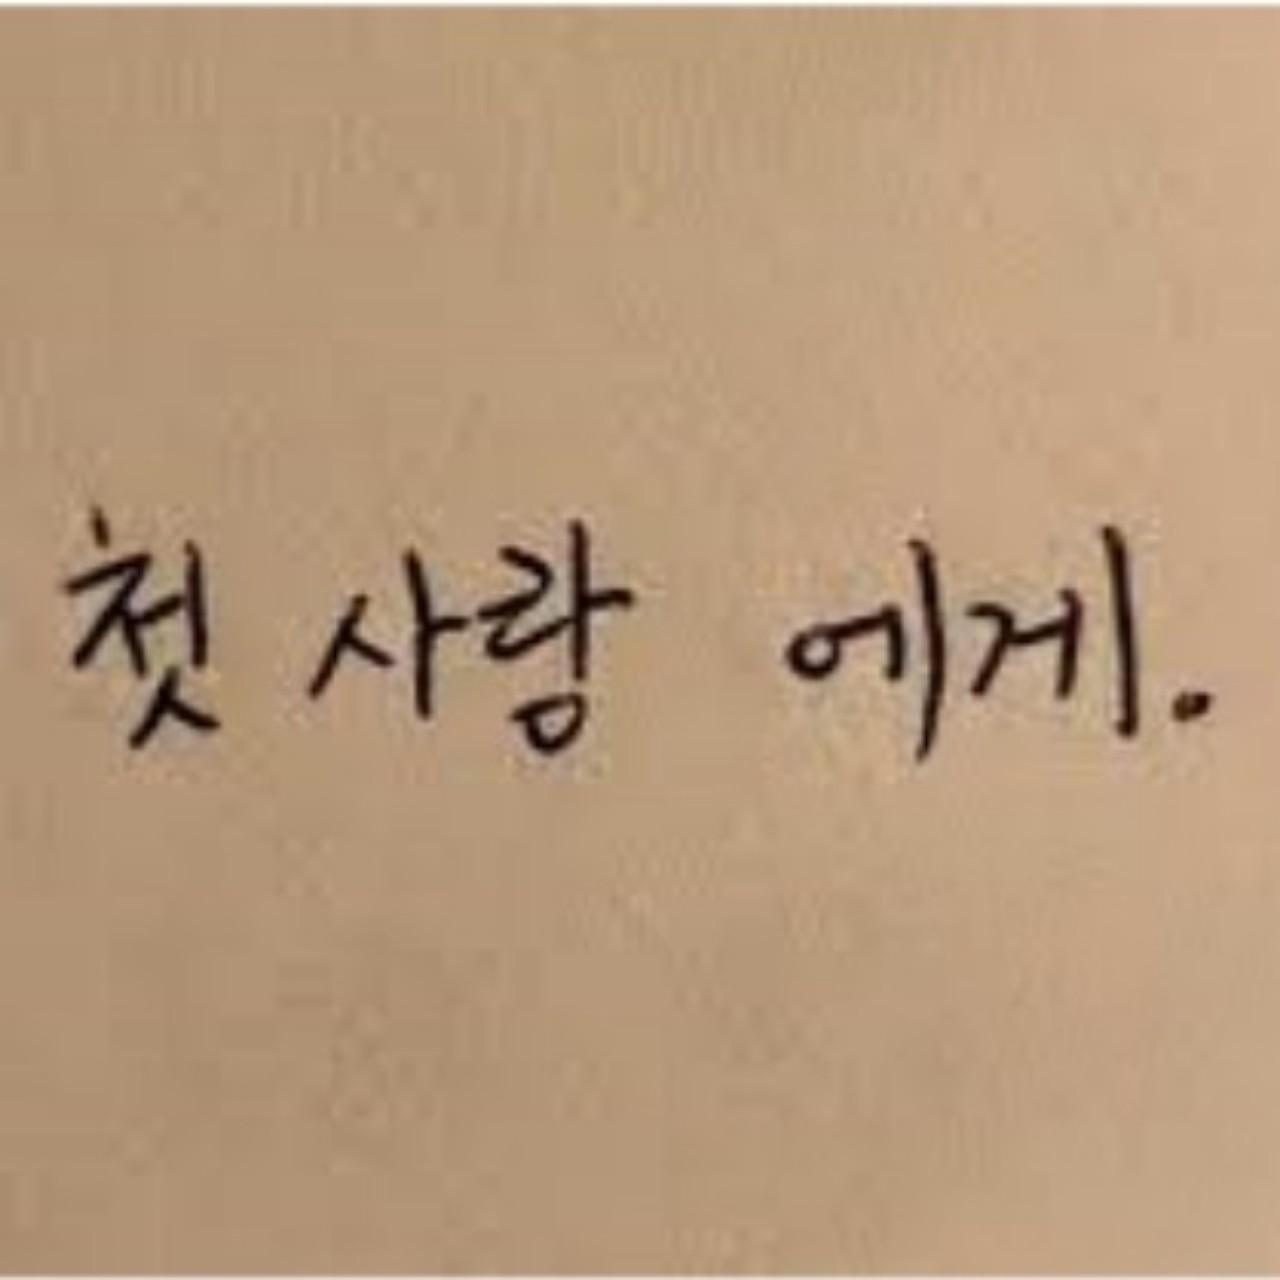 첫사랑 에게.